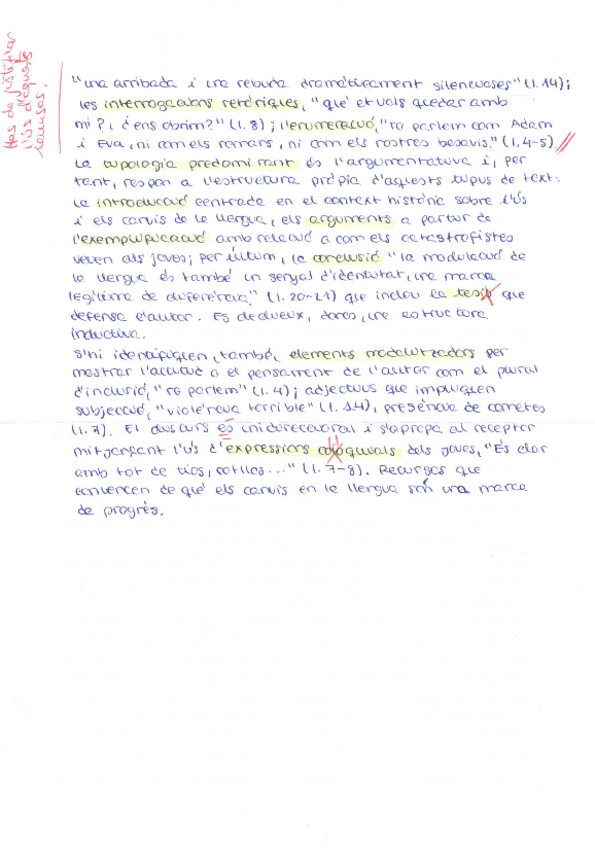 Has de justificar
l'ús d'aquests
recursos.
"una arribada i una rebuda dramàticament silencioses" (l. 14);
les interrogacions retòriques, "què et vols quedar amb
mi?, d'ens obrim?" (l. 8); l'enumeració, "no parlem com Adam
i Eva, ni com els romans, ni com els nostres besavis." (l. 4-5)
La tipologia predominant és l'argumentativa i, per
tant, respon a l'estructura pròpia d'aquests tipus de text:
la introducció centrada en el context històric sobre l'ús
i els canvis de la llengua, els arguments a partir de
l'exemplificació amb relació a com els catastrofistes
veuen als joves; per últim, la conclusió "la modulació de
la llengua és també un senyal d'identitat, una marca
legítima de diferència." (l. 20-21) que inclou la tesis que
defensa l'autor. Es dedueix, doncs, una estructura
inductiva.
S'hi identifiquen, també, elements modalitzadors per
mostrar l'actitud o el pensament de l'autor com el plural
d'inclusió, "no parlem" (l. 4); adjectius que impliquen
subjecció, "violència terrible" (l. 14), presència de cometes
(l. 7). El discurs és unidireccional i s'apropa al receptor
mitjançant l'ús d'expressions coloquials dels joves, "És clar
amb tot de tios, rotllos..." (l. 7-8). Recursos que
convencen de què els canvis en la llengua són una marca
de progrés.